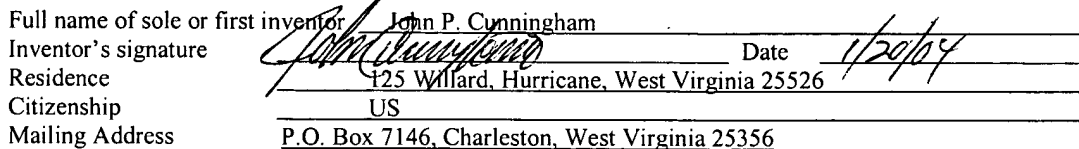 Full name of sole or first inventor John P. Cunningham
Inventor's signature John Cunningham Date 1/20/04
Residence 125 Willard, Hurricane, West Virginia 25526
Citizenship US
Mailing Address P.O. Box 7146, Charleston, West Virginia 25356